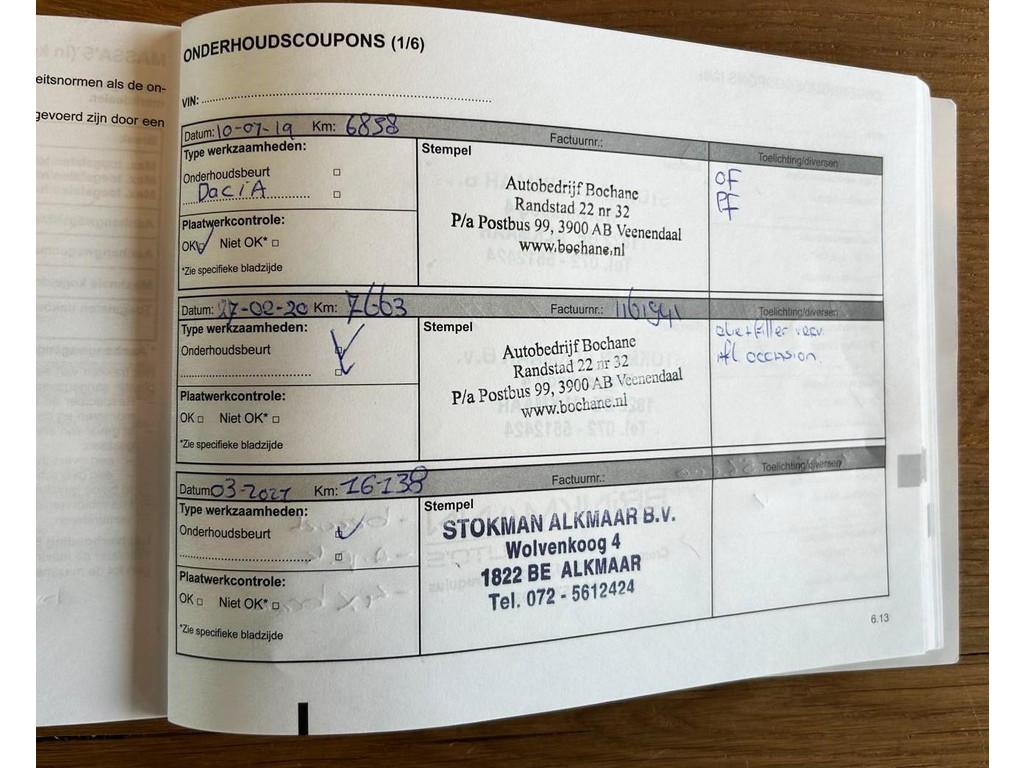 eitsnormen als de on-
gevoerd zijn door een
ONDERHOUDSCOUPONS (1/6)
VIN:
Datum: 10-07-19 Km: 6858 Factuurnr.: Toelichting/diversen
Type werkzaamheden:
Onderhoudsbeurt
DaciA
Plaatwerkcontrole:
OK Niet OK*
*Zie specifieke bladzijde
Stempel
Autobedrijf Bochane
Randstad 22 nr 32
P/a Postbus 99, 3900 AB Veenendaal
www.bochane.nl
OF
PF
Datum: 27-02-20 Km: 7663 Factuurnr.: 1161941 Toelichting/diversen
Type werkzaamheden:
Onderhoudsbeurt
Plaatwerkcontrole:
OK Niet OK*
*Zie specifieke bladzijde
Stempel
Autobedrijf Bochane
Randstad 22 nr 32
P/a Postbus 99, 3900 AB Veenendaal
www.bochane.nl
olie+filter
afl occasion.
Datum 03-2021 Km: 16138 Factuurnr.: Toelichting/diversen
Type werkzaamheden:
Onderhoudsbeurt
Plaatwerkcontrole:
OK Niet OK*
*Zie specifieke bladzijde
Stempel
STOKMAN ALKMAAR B.V.
Wolvenkoog 4
1822 BE ALKMAAR
Tel. 072 - 5612424
6.13